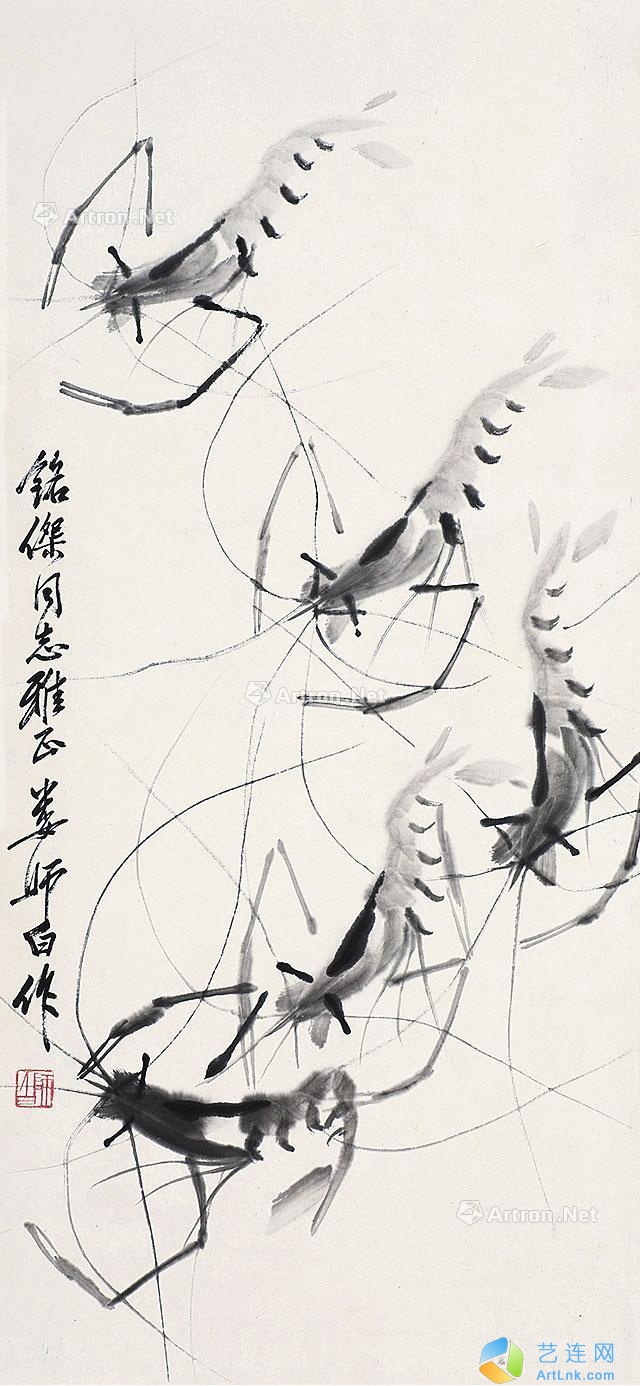 銘傑同志雅正婁師白作
Artron.Net
Artron.Net
Artron.Net
艺连网
ArtLnk.com